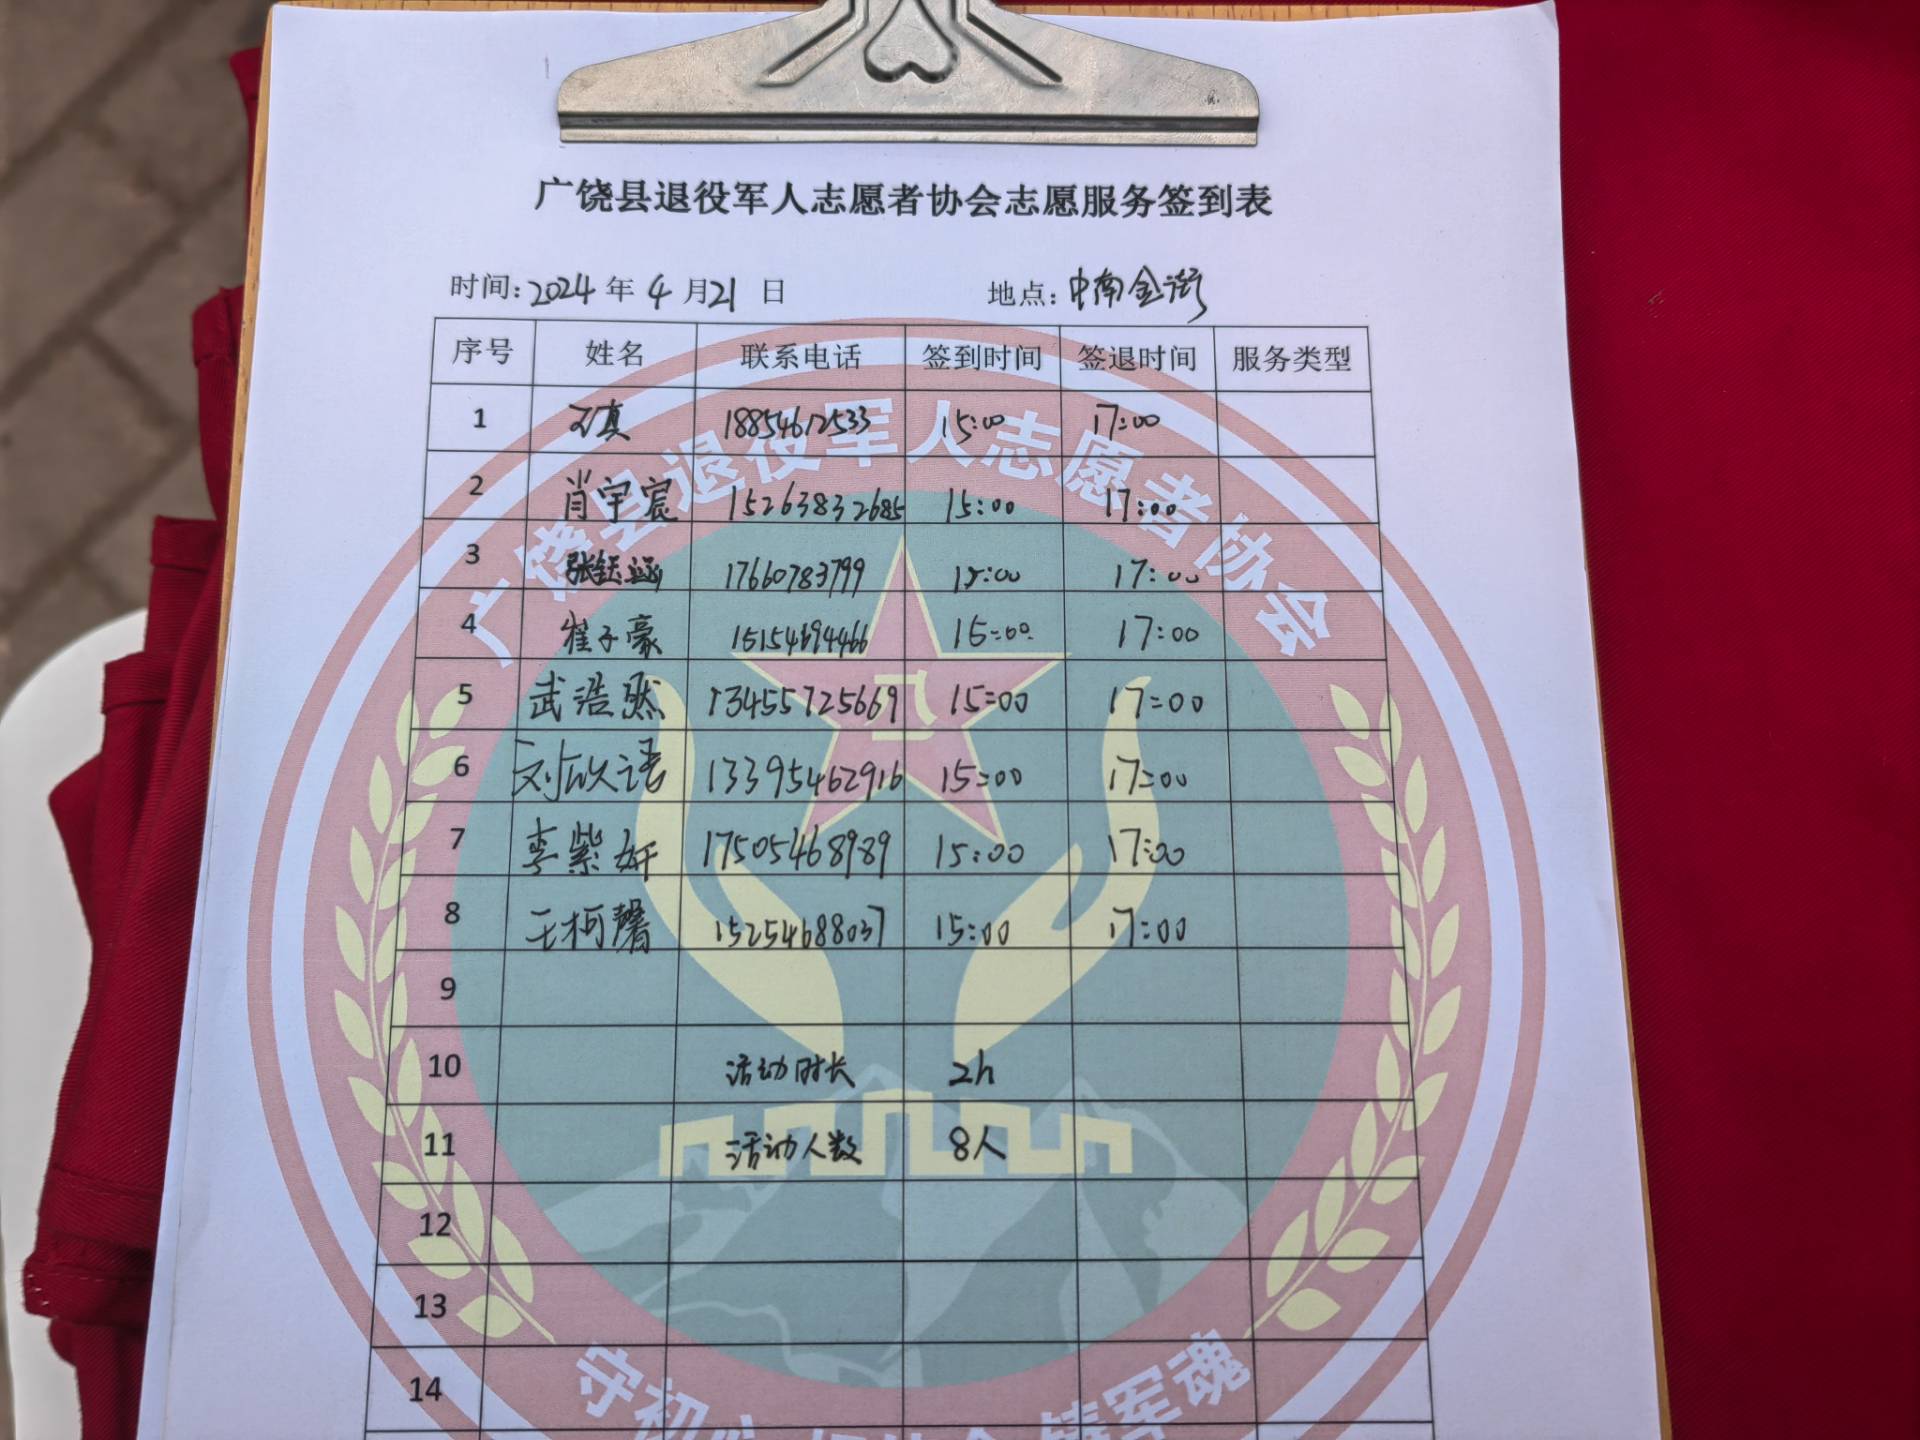 广饶县退役军人志愿者协会志愿服务签到表
时间：2024 年 4 月 21 日 地点：中南金街
序号 姓名 联系电话 签到时间 签退时间 服务类型
1 18854612533 15:00 17:00
2 肖宇宸 15263832685 15:00 17:00
3 张钰涵 17660783799 15:00 17:00
4 崔子豪 15154694466 15:00 17:00
5 武浩然 13455725669 15:00 17:00
6 刘欣语 13395462916 15:00 17:00
7 李紫妍 17505468989 15:00 17:00
8 王柯馨 15254688037 15:00 17:00
9
10 活动时长 2h
11 活动人数 8人
12
13
14
广饶县退役军人志愿者协会
守初心
铸军魂